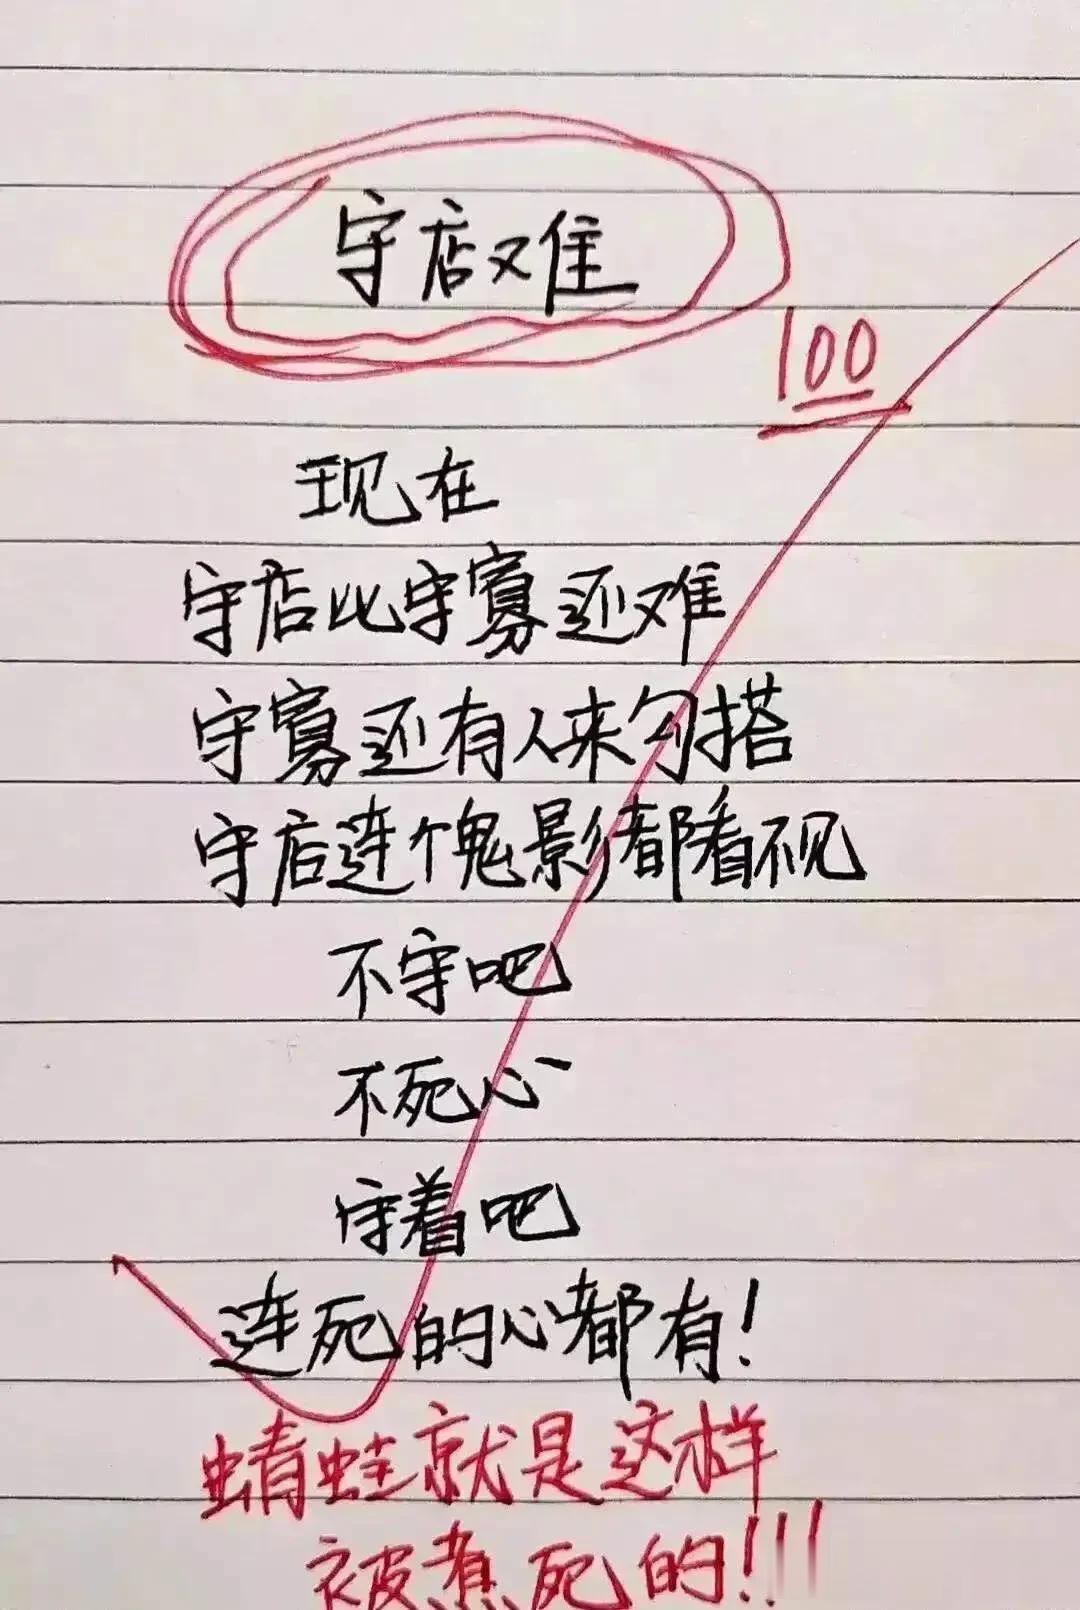 守店难
100
现在
守店比守寡还难
守寡还有人来勾搭
守店连个鬼影都看不见
不守吧
不死心
守着吧
连死的心都有!
蜻蛙就是这样
被煮死的!!!